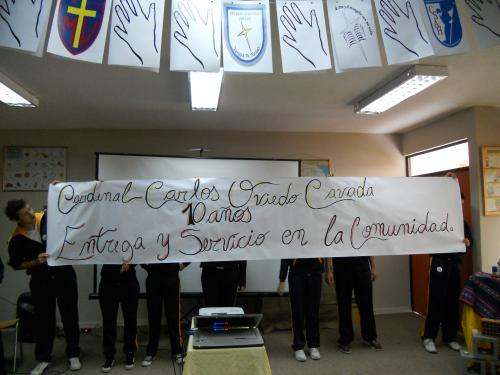 Cardinal Carlos Oviedo Cavada
10 años
Entrega y Servicio en la Comunidad.